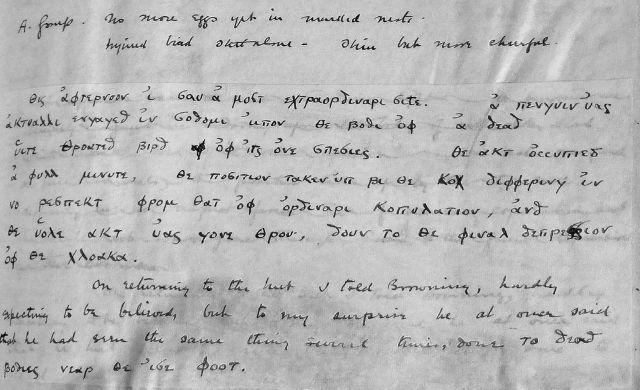 A. Group. No more eggs yet in marked nests.
Injured bird still alone – thin but more cheerful.
θις ἀφτερνοον ἰ σαυ ἀ μοστ εχτραορδιναρι σιτε. ἀ πενγυιν ὑας
ἀκτυαλλι ενγαγεδ ἰν σοδομι ὐπον θε βοδι ὀφ ἀ δεαδ
ὑιτε θροατεδ βιρδ ὀφ ἰτς ὀνε σπεσιες. θε ἀκτ ὀccυπιεδ
ἀ φυλλ μινυτε, θε ποσιτιον τακεν ὐπ βι θε κοχ διφφερινγ ἰν
νο ρεσπεκτ φρομ θατ ὀφ ὀρδιναρι κοπυλατιον, ἀνδ
θε ὑολε ακτ ὑας γονε θρου, δουν το θε φιναλ δεπρεσσιον
ὀφ θε χλοακα.
On returning to the hut I told Browning, hardly
expecting to be believed, but to my surprise he at once said
that he had seen the same thing several times, δονε το δεαδ
βοδιες νεαρ θε ἰσε φοοτ.